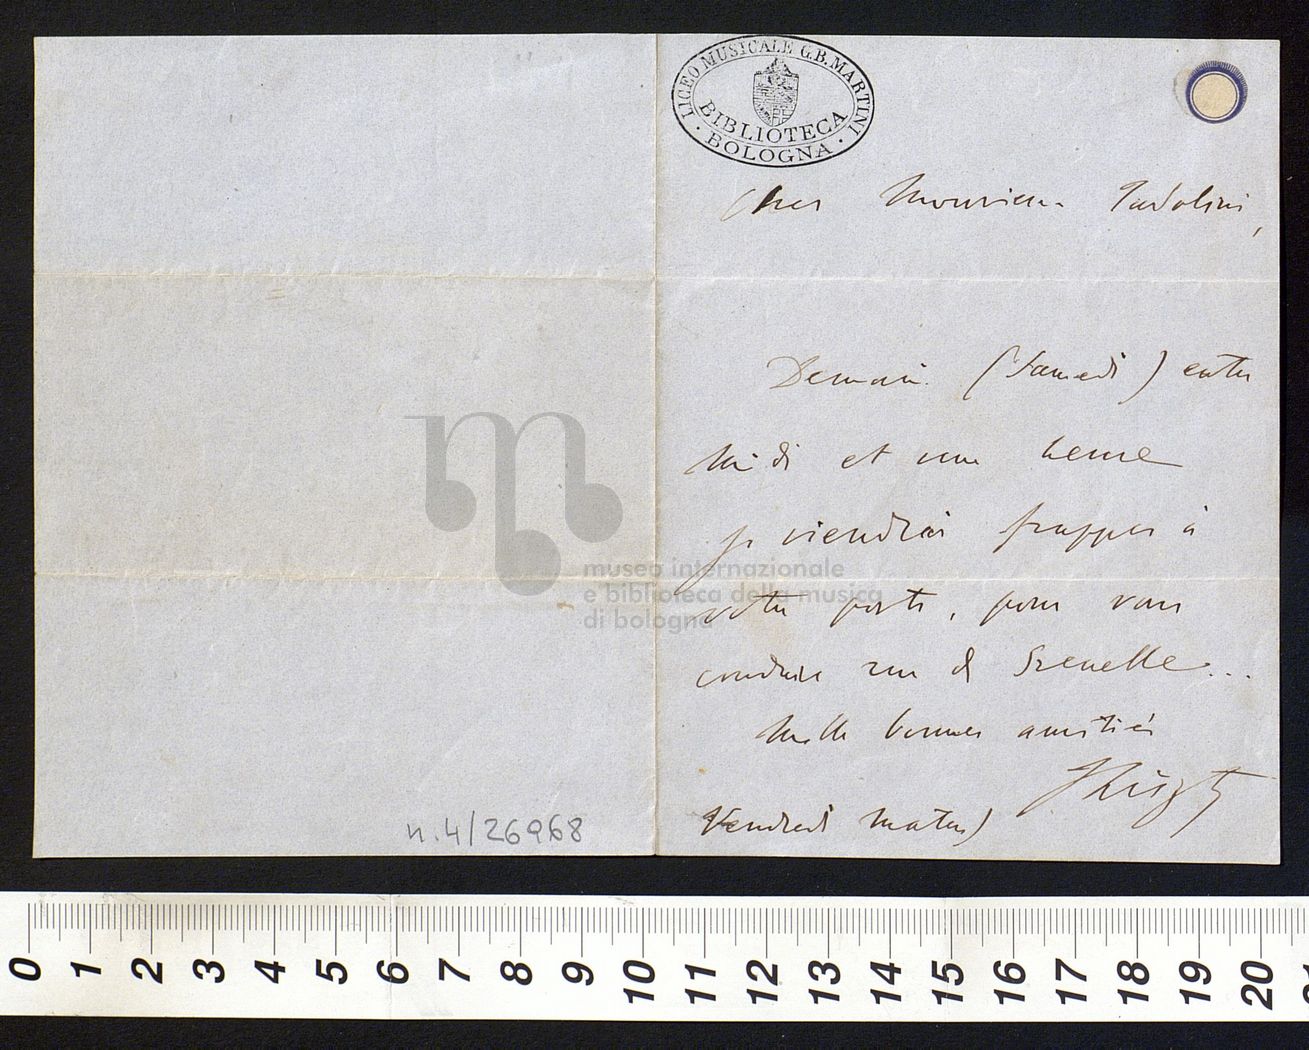 LICEO MUSICALE G.B. MARTINI
BIBLIOTECA
BOLOGNA
Cher Monsieur Tadolini,
Demain (Samedi) entre
midi et une heure
je viendrai frapper à
votre porte, pour vous
conduire rue de Grenelle...
Mille bonnes amitiés
FLiszt
Vendredi matin)
n.4/26968
museo internazionale
e biblioteca della musica
di bologna
0 1 2 3 4 5 6 7 8 9 10 11 12 13 14 15 16 17 18 19 20